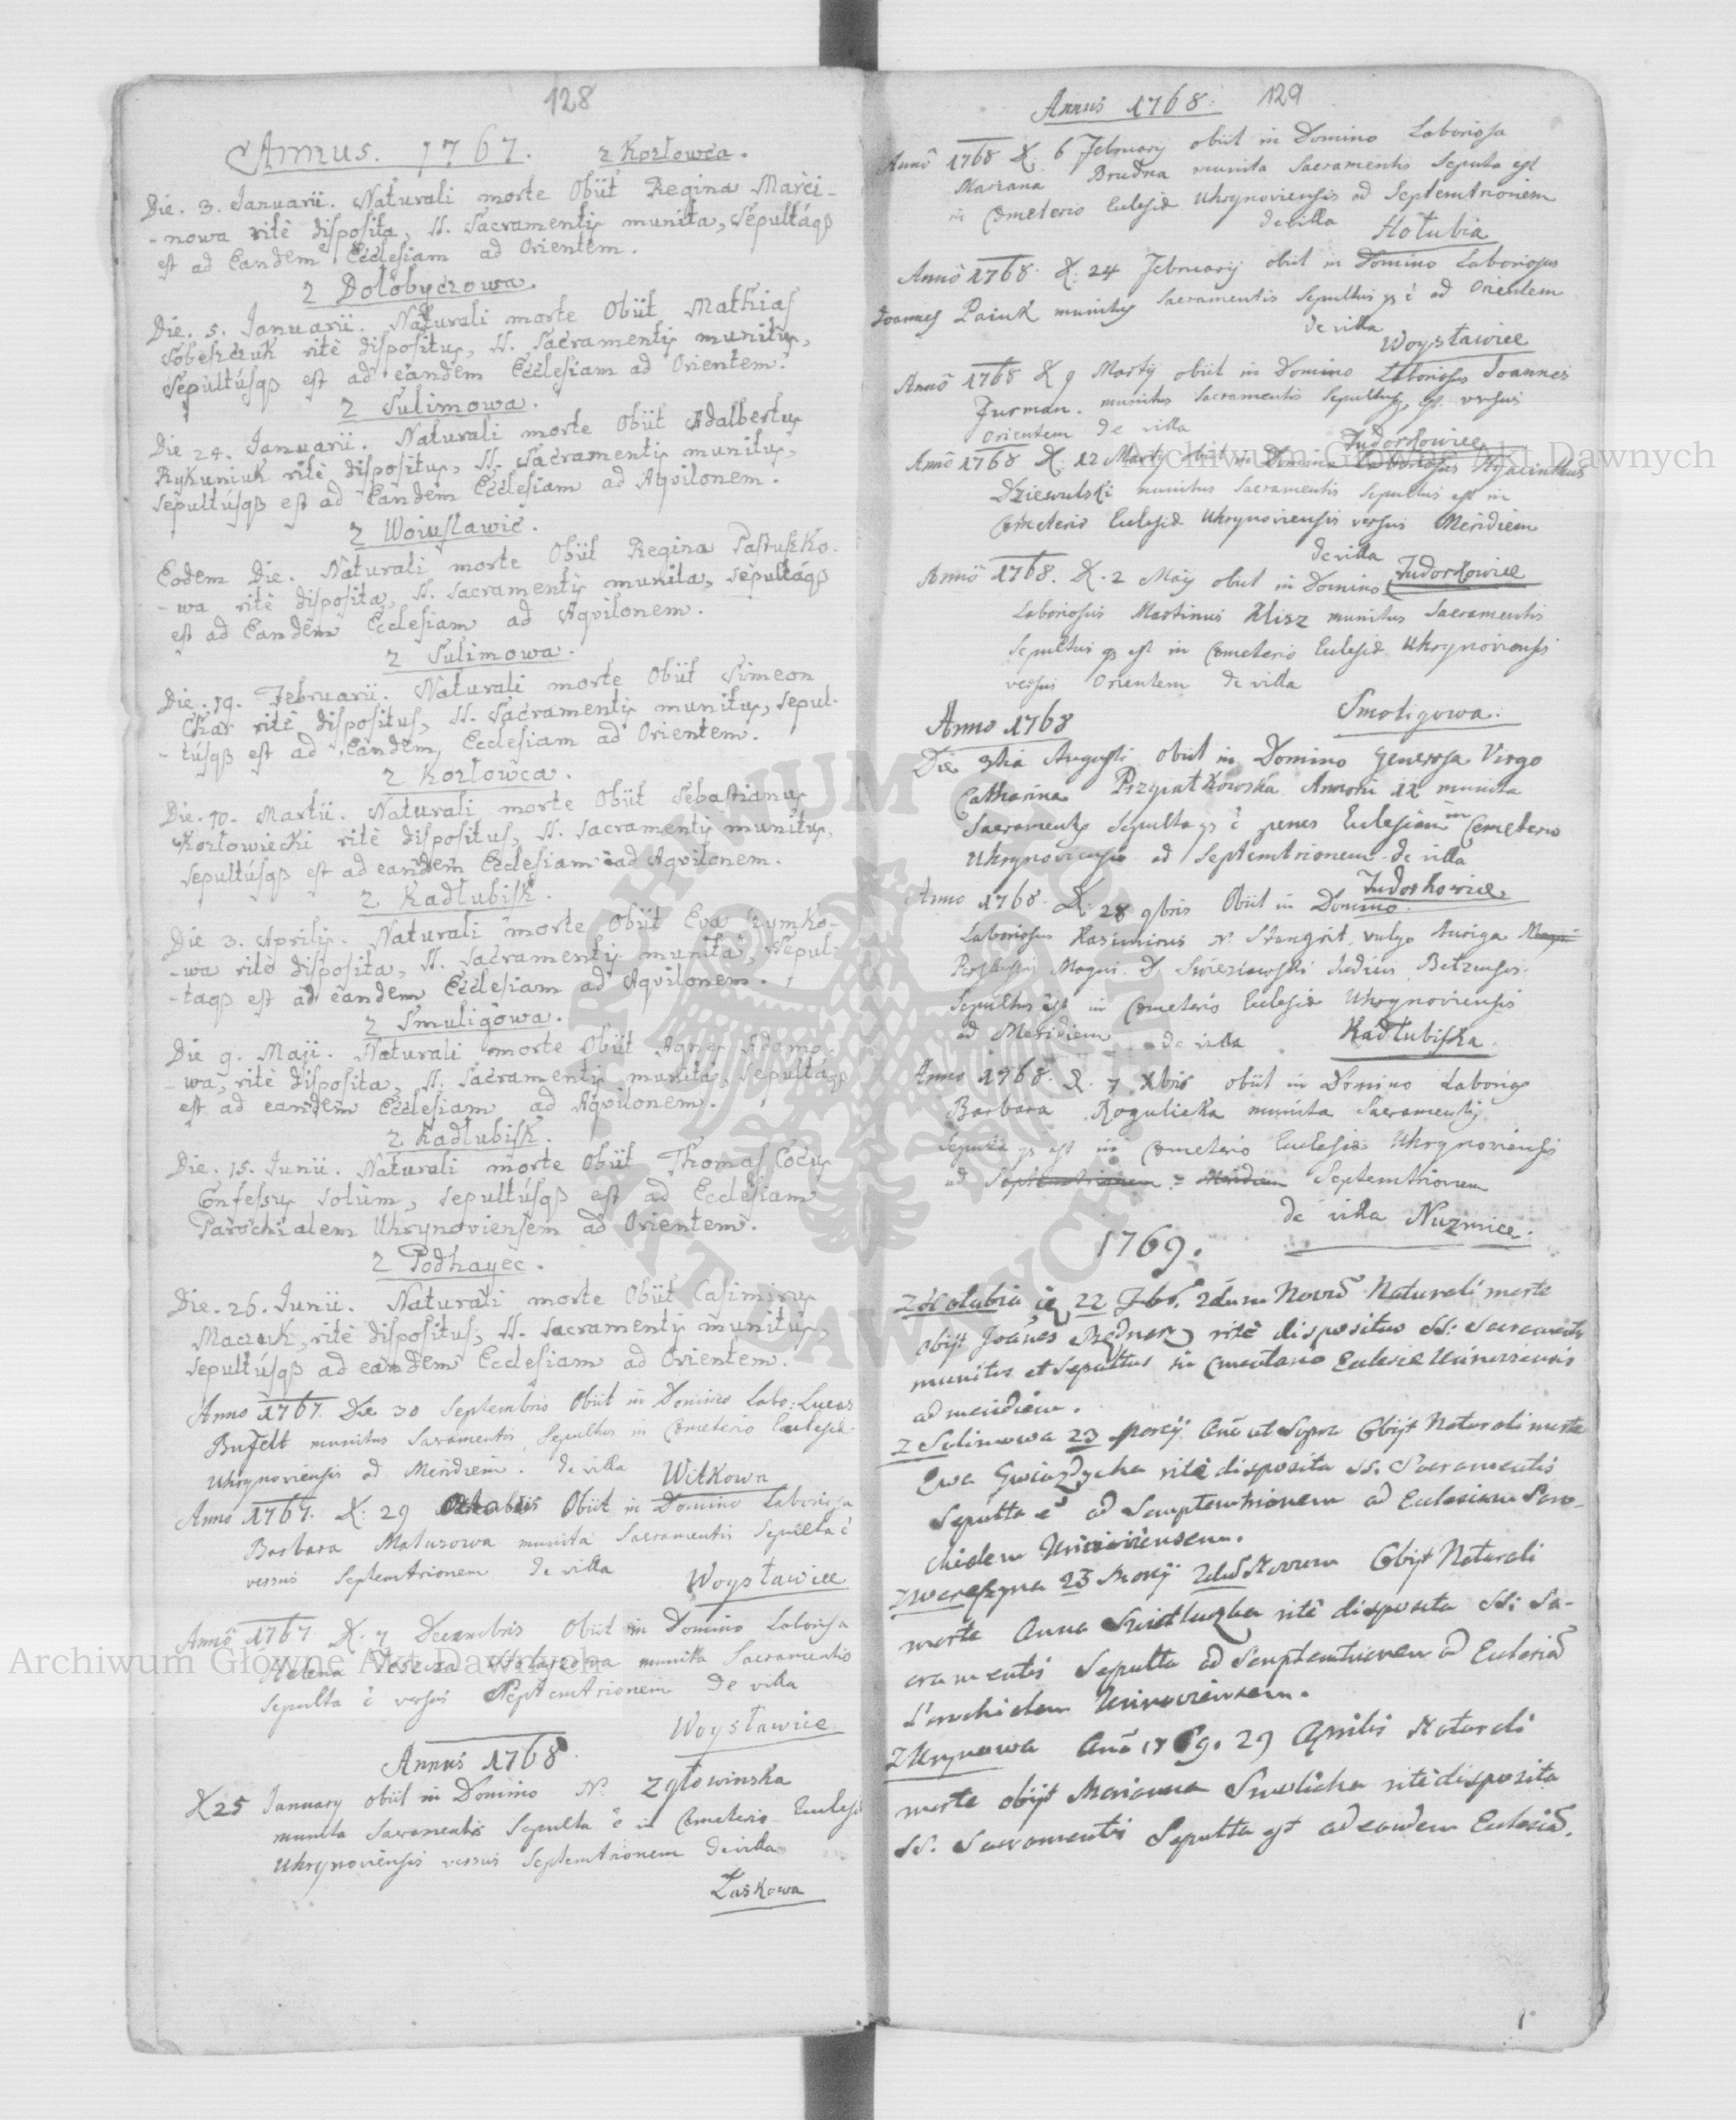 128
Annus. 1767. z Kozłowca.
Die. 3. Januarii. Naturali morte Obiit Regina Marci-
-nowa ritè disposita, SS. Sacramentis munita, Sepultáqß
est ad Eandem Ecclesiam ad Orientem.
z Dołobyczowa.
Die. 5. Januarii. Naturali morte Obiit Mathias
Sobeszczuk ritè dispositus, SS. Sacramentis munitus,
Sepultúsqß est ad eandem Ecclesiam ad Orientem.
z Sulimowa.
Die 24. Januarii. Naturali morte Obiit Adalbertus
Rykuniuk ritè dispositus, SS. Sacramentis munitus,
sepultúsqß est ad Eandem Ecclesiam ad Aqvilonem.
z Woiusławic.
Eodem Die. Naturali morte Obiit Regina Pastuszko-
-wa ritè disposita, SS. Sacramentis munita, sepultáqß
est ad Eandem Ecclesiam ad Aqvilonem.
z Sulimowa.
Die. 19. Februarii. Naturali morte Obiit Simeon
Char ritè dispositus, SS. Sacramentis munitus, sepul-
-túsqß est ad Eandem Ecclesiam ad Orientem.
z Kozłowca.
Die. 10. Martii. Naturali morte Obiit Sebastianus
Kozłowiecki ritè dispositus, SS. Sacramentis munitus,
sepultúsqß est ad eandem Ecclesiam ad Aqvilonem.
z Kadłubisk.
Die 3. Aprilis. Naturali morte Obiit Eva Szymko-
-wa ritè disposita, SS. Sacramentis munita, Sepul-
-taqß est ad eandem Ecclesiam ad Aqvilonem.
z Smuligowa.
Die 9. Maji. Naturali morte Obiit Agnes Adamo-
-wa, ritè disposita, SS. Sacramentis munita, sepultáqß
est ad eandem Ecclesiam ad Aqvilonem.
z Kadłubisk.
Die. 15. Junii. Naturali morte Obiit Thomas Cocus
Confessus solùm, sepultúsqß est ad Ecclesiam
Parochialem Uhrynoviensem ad Orientem.
z Podhayec.
Die. 26. Junii. Naturali morte Obiit Casimirus
Maczuk, ritè dispositus, SS. Sacramentis munitus,
sepultúsqß ad eandem Ecclesiam ad Orientem.
Anno 1767. Die 30 Septembris Obiit in Domino Labo: Lucas
Bufelt munitus Sacramentis Sepultus in Cœmeterio Eclesiæ
Uhrynoviensis ad Meridiem. de villa Witkowa
Anno 1767. D: 29 Octobris Obiit in Domino Laboriosa
Barbara Matusowa munita Sacramentis Sepulta ē
versus Septemtrionem de villa
Woysławice
Annô 1767 D: 7 Decembris Obiit in Domino Laboriosa
Helena munita Sacramentis
Sepulta ē versus Septemtrionem de villa
Woysławice
Annus 1768
D 25 January obiit in Domino N. Zgłowinska
munita Sacramentis Sepulta ē in Cœmeterio Eccles
Uhrynoviensis versus Septemtrionem de villa
Łaskowa
129
Annus 1768.
Annô 1768 D. 6 February obiit in Domino Laboriosa
Mariana Brudna munita Sacramentis Sepulta est
in Cœmeterio Eclesiæ Uhrynoviensis ad Septemtrionem
de villa Hołubia
Annô 1768. D: 24 February obiit in Domino Laboriosus
Joannes Paiuk munitus Sacramentis Sepultus qs ē ad Orientem
de villa
Woysławice
Annô 1768 D 9 Martÿ obiit in Domino Laboriosus Joannes
Furman. munitus Sacramentis Sepultus qs. versus
Orientem de villa
Tudorkowice
Annô 1768 D. 12 Martÿ Obiit in Domino Laboriosus Hyacinthus
Dziewulski munitus Sacramentis Sepultus est in
Cœmeterio Eclesiæ Uhrynoviensis versus Meridiem
de villa
Annô 1768. D. 2 May obiit in Domino Tudorkowice
Laboriosus Martinus Klisz munitus Sacramentis
Sepultus qs est in Cœmeterio Eclesiæ Uhrynoviensis
versus Orientem de villa
Smoligowa.
Anno 1768
Die 3tia Augusti obiit in Domino Generosa Virgo
Catharina Przypatkowska Annorum 12 munita
Sacramentis Sepulta qs ē penes Eclesiam in Cœmeterio
Uhrynoviensis ad Septemtrionem de villa
Tudorkowice
Anno 1768. D. 28 9bris Obiit in Domino.
Laboriosus Kasimirus N. Stangrit vulgo Auriga
Magni. D Swieziawski Judicis Belzensis.
Sepultus est in Cœmeterio Eclesiæ Uhrynoviensis
ad Meridiem de villa Kadłubiska.
Anno 1768. D. 7 Xbris obiit in Domino Laborios
Barbara Rogulicka munita Sacramentis
Sepulta qs est in Cœmeterio Eclesiæ Uhrynoviensis
ad Septemtrionem Meridiem Septemtrionem
de villa Nuzmice.
1769.
z Hołubia 22 Naturali morte
obijt Joanes Bednarz ritè dispositus SS: Sacramentis
munitus et Sepultus in Eclesiæ
ad meridiem.
z Sulimowa 23 anō ut Supra Obijt Naturali morte
Ewa Gwiazdycha ritè disposita SS. Sacramentis
Sepulta ē ad Semptemtrionem ad Eclesiam Paro-
chialem
23 Obijt Naturali
morte Anna ritè disposita SS: Sa-
cramentis Sepulta ad Semptemtrionem ad Eclesiā
Parochialem
z Uhrynowa Anō 1769. 29 Aprilis Naturali
morte obijt Marianna ritè disposita
SS. Sacramentis Sepulta est ad eandem Eclesiā.
Archiwum Główne Akt Dawnych
Archiwum Główne Akt Dawnych
ARCHIWUM GŁÓWNE AKT DAWNYCH